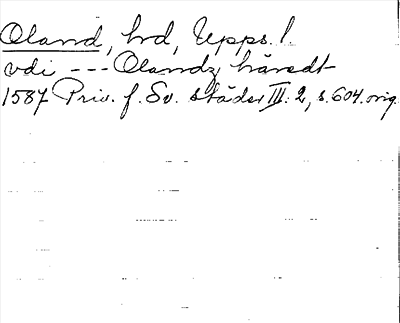 Oland, hd, Upps. l.
vdi --- Olandz häredt
1587 Priv. f. Sv. städer III: 2, s. 604. orig.